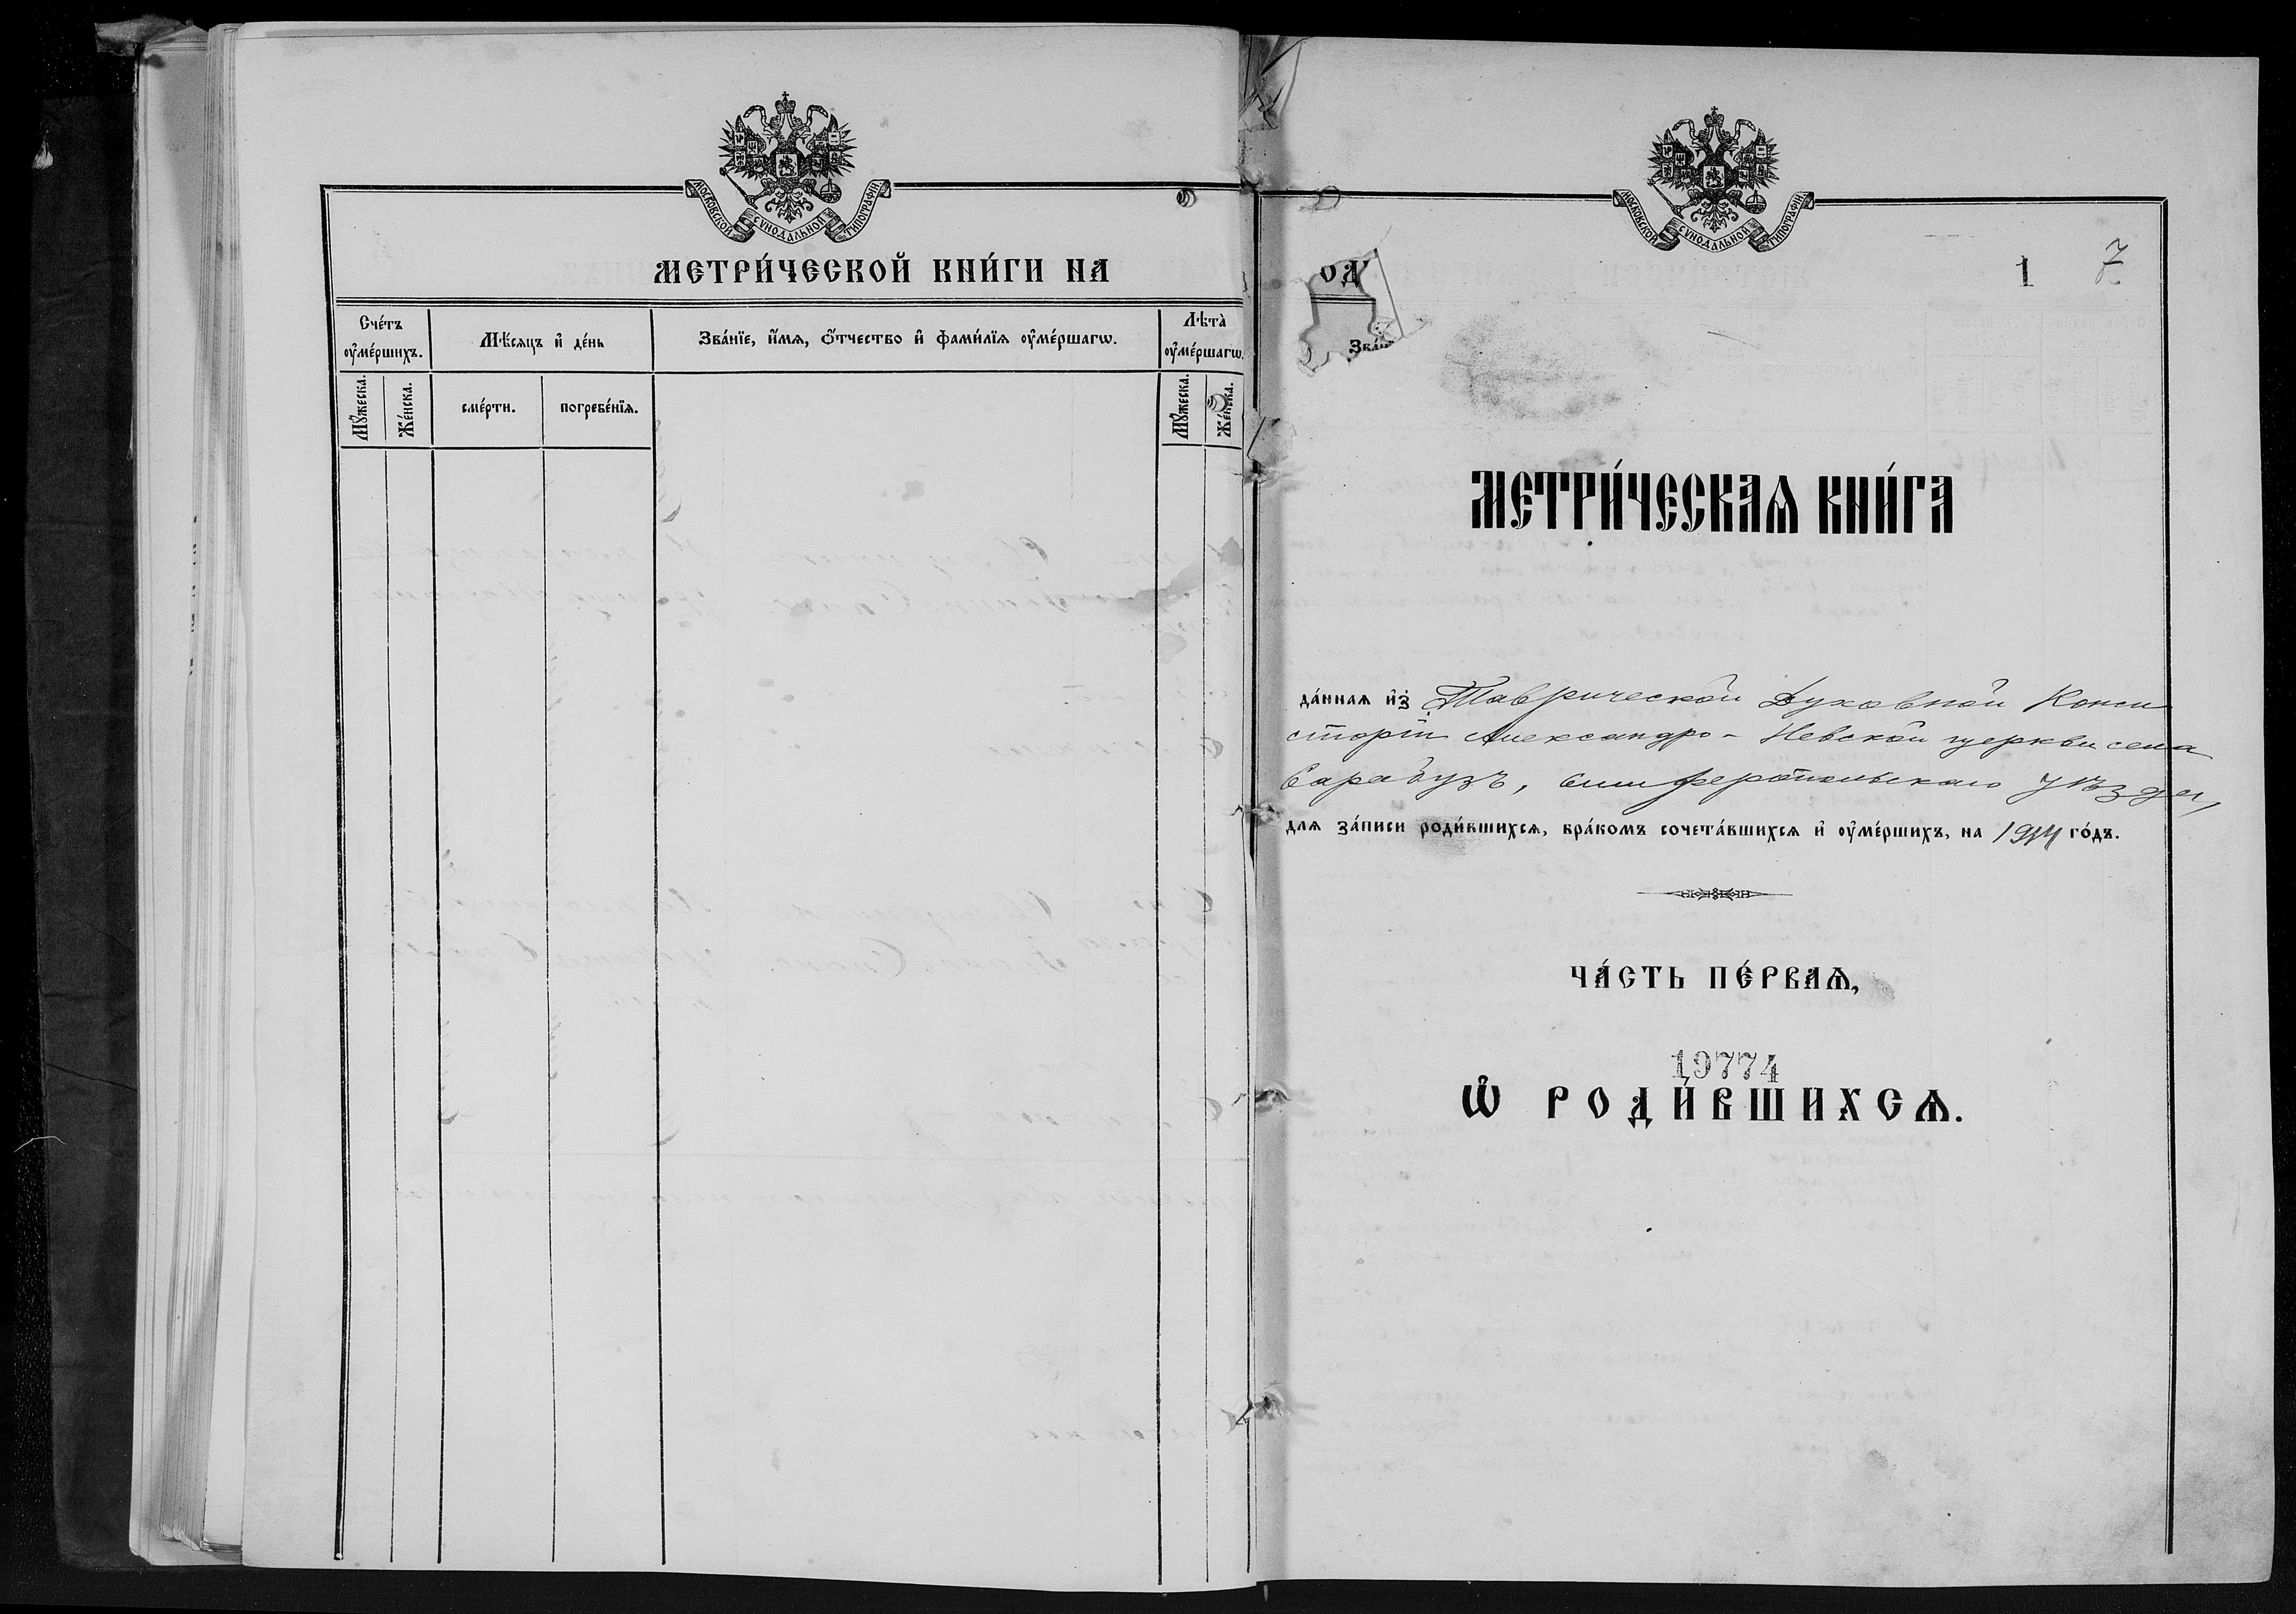 МОСКОВСКОЙ СѴНОДАЛЬНОЙ ТИПОГРАФІИ
МЕТРИ́ЧЕСКОЙ КНИ́ГИ НА
Сче́тъ ᲂу҆ме́ршихъ.
Мѣ́сяцъ и҆ де́нь
Зва́нїе, и҆́мѧ, ѻ҆́тчество и҆ фами́лїѧ ᲂу҆ме́ршагѡ.
Лѣ́та̀ ᲂу҆ме́ршагѡ.
Мꙋ́жеска.
Же́нска.
сме́рти.
погребе́нїѧ.
Мꙋ́жеска.
Же́нска.
МОСКОВСКОЙ СѴНОДАЛЬНОЙ ТИПОГРАФІИ
1 7
МЕТРИ́ЧЕСКАѦ КНИ́ГА
да́ннаѧ и҆з̾ Таврической Духовной Конси
сторіи Александро-Невской церкви села
Сарабузъ, Симферопольскаго уѣзда,
длѧ за́писи роди́вшихсѧ, бра́комъ сочета́вшихсѧ и҆ ᲂу҆ме́ршихъ, на 1914 го́дъ.
ЧА́СТЬ ПЕ́РВАѦ,
19774
Ѡ҆ РОДИ́ВШИХСѦ.